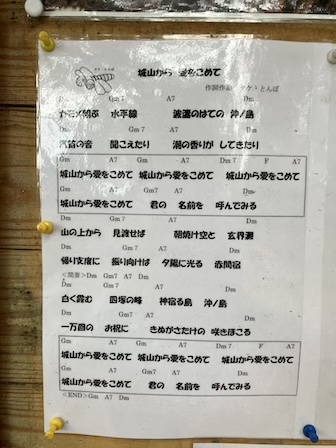 城山から 愛をこめて
作詞作曲 アケ・とんぼ
Dm Gm7 A7 Dm
カモメ飛ぶ 水平線 波濤のはての 沖ノ島
Dm Gm7 A7 Dm
汽笛の音 聞こえたり 潮の香りが してきたり
Gm A7 Gm A7 Dm Gm7 Dm7 F A7
城山から愛をこめて 城山から愛をこめて 城山から愛をこめて
Gm A7 Dm
城山から愛をこめて 君の 名前を 呼んでみる
Dm Gm7 A7 Dm
山の上から 見渡せば 朝焼け空と 玄界灘
Dm Gm7 A7 Dm
帰り支度に 振り向けば 夕陽に光る 赤間宿
<間奏>Dm Gm7 A7 Dm
Dm Gm7 A7 Dm
白く霞む 四塚の峰 神宿る島 沖ノ島
Dm Gm7 A7 Dm
一万回の お祝に きぬがさだけの 咲きほこる
Gm A7 Gm A7 Dm Gm7 F A7
城山から愛をこめて 城山から愛をこめて 城山から愛をこめて
Gm A7 Dm
城山から愛をこめて 君の 名前を 呼んでみる
<END>Gm A7 Dm